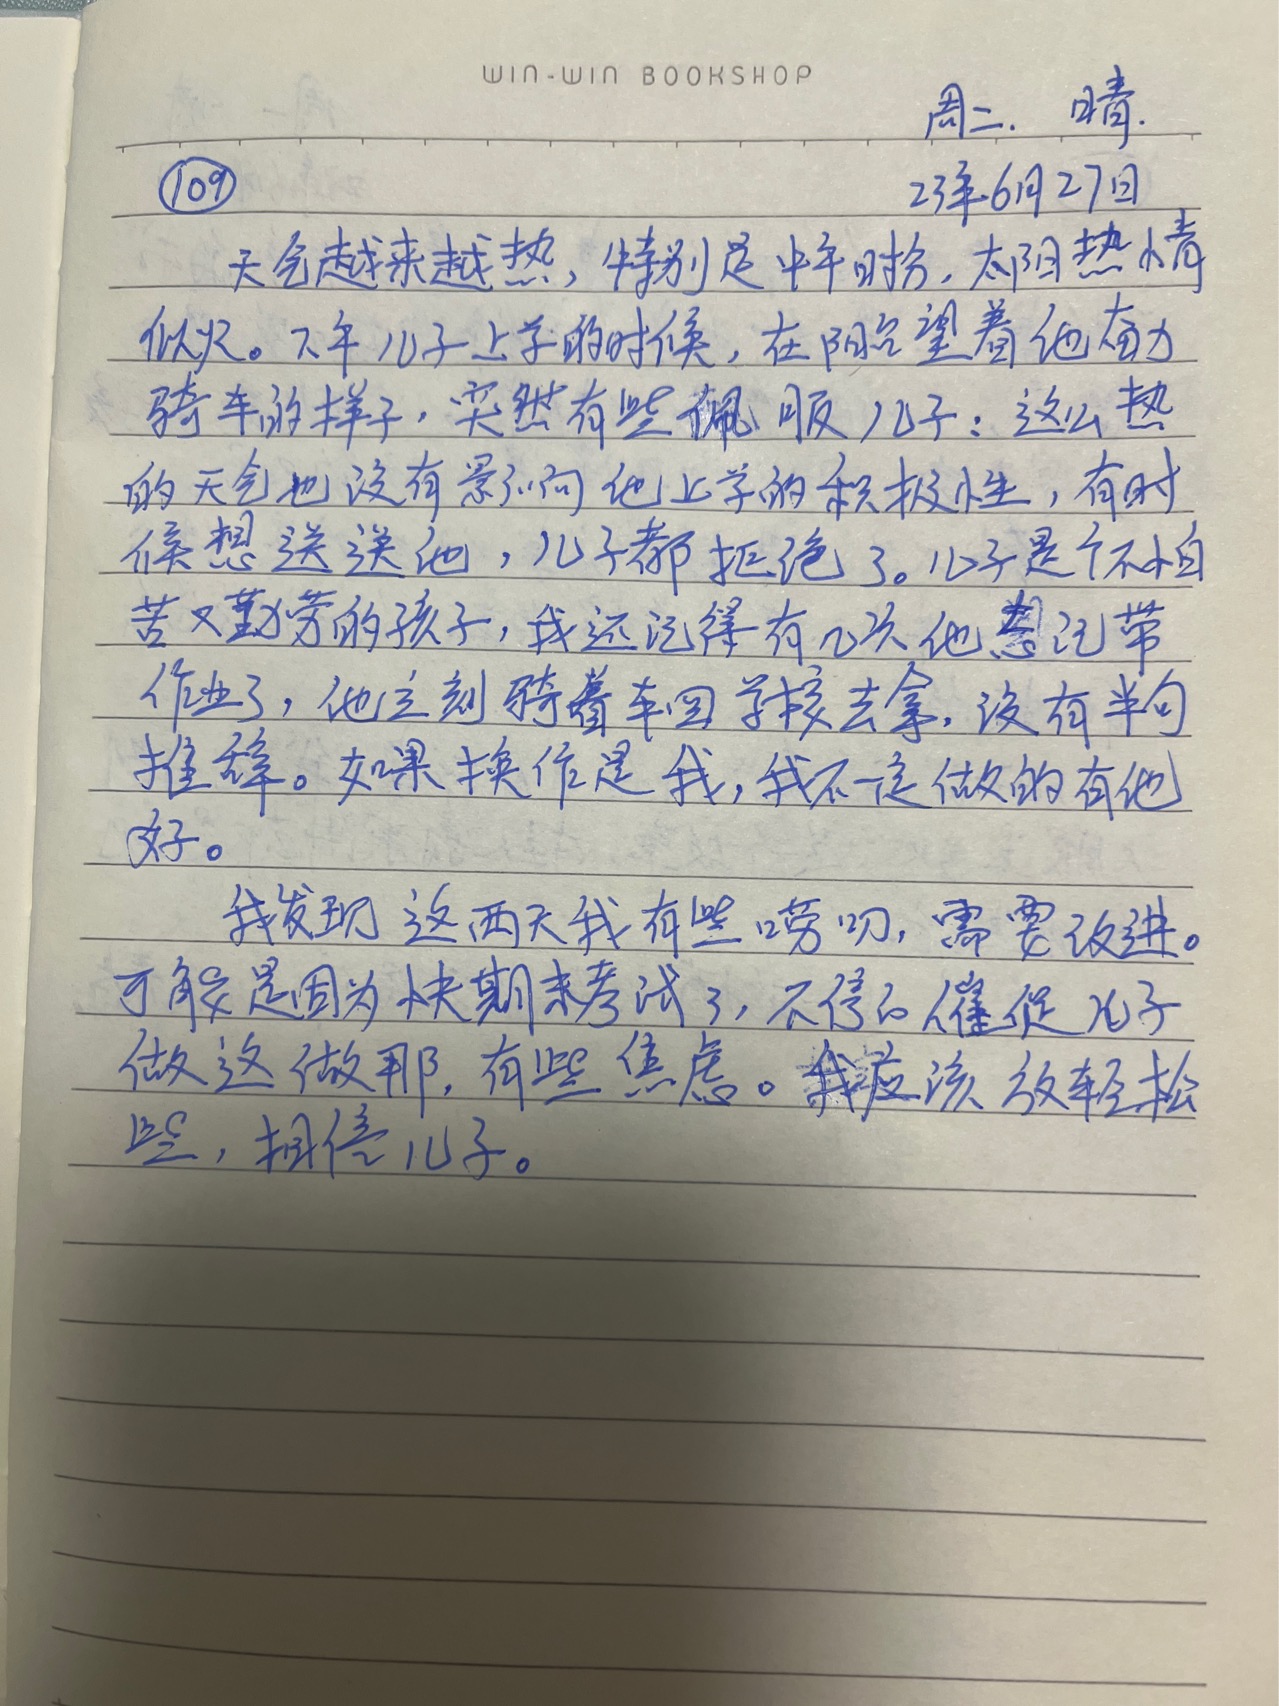 WIN-WIN BOOKSHOP
周二. 晴.
109
23年6月27日
天气越来越热，特别是中午时分，太阳热情
似火。下午儿子上学的时候，在阳台望着他奋力
骑车的样子，突然有些佩服儿子：这么热
的天气也没有影响他上学的积极性，有时
候想送送他，儿子都拒绝了。儿子是个不怕
苦又勤劳的孩子，我还记得有几次他忘记带
作业了，他立刻骑着车回学校去拿，没有半句
推辞。如果换作是我，我不一定做的有他
好。
我发现这两天我有些唠叨，需要改进。
可能是因为快期末考试了，不停的催促儿子
做这做那，有些焦虑。我应该放轻松
些，相信儿子。